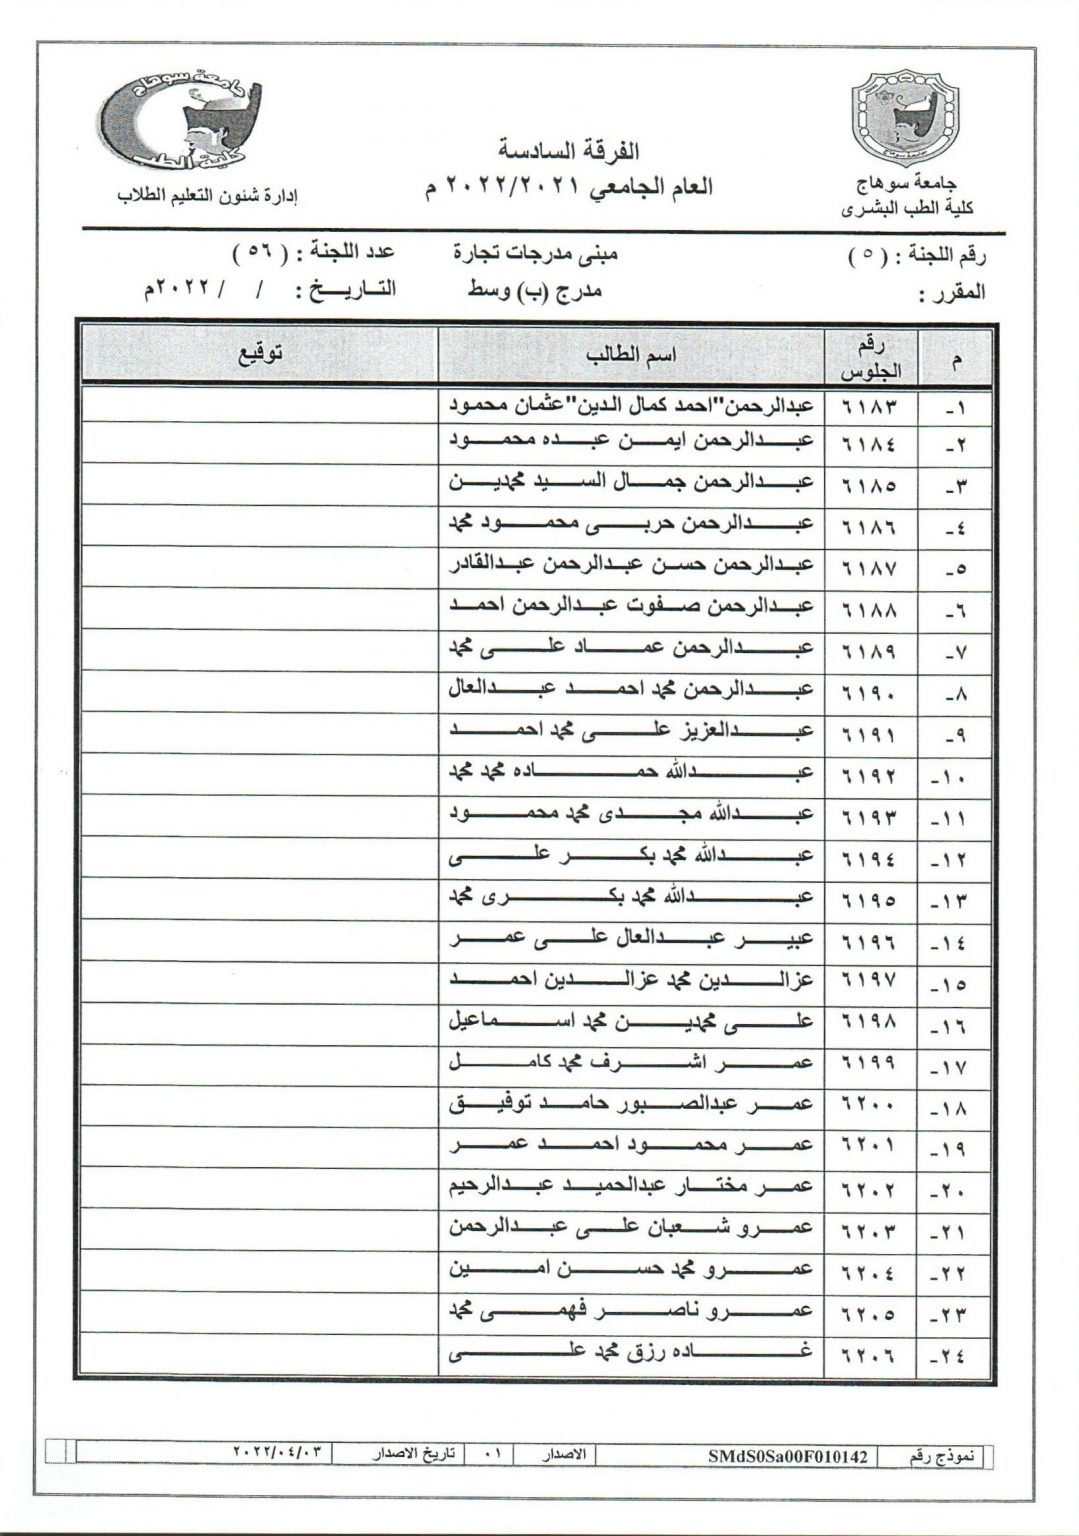 جامعة سوهاج
كلية الطب
إدارة شئون التعليم الطلاب
الفرقة السادسة
العام الجامعي ٢٠٢٢/٢٠٢١ م
جامعة سوهاج
كلية الطب البشرى
رقم اللجنة : ( ٥ ) مبنى مدرجات تجارة عدد اللجنة : ( ٥٦ )
المقرر : مدرج (ب) وسط التاريخ : / / ٢٠٢٢م
م رقم الجلوس اسم الطالب توقيع
١- ٦١٨٣ عبدالرحمن"احمد كمال الدين"عثمان محمود
٢- ٦١٨٤ عبدالرحمن ايمن عبده محمود
٣- ٦١٨٥ عبدالرحمن جمال السيد محمدين
٤- ٦١٨٦ عبدالرحمن حربى محمود محمد
٥- ٦١٨٧ عبدالرحمن حسن عبدالرحمن عبدالقادر
٦- ٦١٨٨ عبدالرحمن صفوت عبدالرحمن احمد
٧- ٦١٨٩ عبدالرحمن عماد على محمد
٨- ٦١٩٠ عبدالرحمن محمد احمد عبدالعال
٩- ٦١٩١ عبدالعزيز على محمد احمد
١٠- ٦١٩٢ عبدالله حماده محمد محمد
١١- ٦١٩٣ عبدالله مجدى محمد محمود
١٢- ٦١٩٤ عبدالله محمد بكر على
١٣- ٦١٩٥ عبدالله محمد بكرى محمد
١٤- ٦١٩٦ عبير عبدالعال على عمر
١٥- ٦١٩٧ عزالدين محمد عزالدين احمد
١٦- ٦١٩٨ على محمدين محمد اسماعيل
١٧- ٦١٩٩ عمر اشرف محمد كامل
١٨- ٦٢٠٠ عمر عبدالصبور حامد توفيق
١٩- ٦٢٠١ عمر محمود احمد عمر
٢٠- ٦٢٠٢ عمر مختار عبدالحميد عبدالرحيم
٢١- ٦٢٠٣ عمرو شعبان على عبدالرحمن
٢٢- ٦٢٠٤ عمرو محمد حسن امين
٢٣- ٦٢٠٥ عمرو ناصر فهمى محمد
٢٤- ٦٢٠٦ غاده رزق محمد على
نموذج رقم SMdS0Sa00F010142 الاصدار ٠١ تاريخ الاصدار ٢٠٢٢/٠٤/٠٣